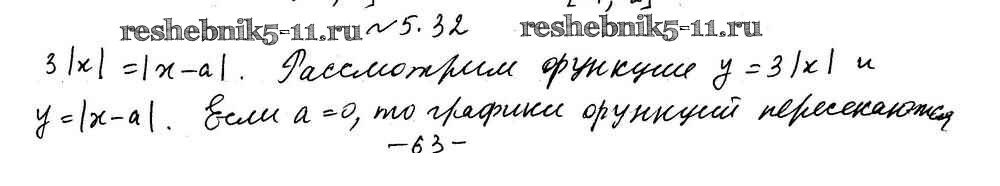 reshebnik5-11.ru № 5.32 reshebnik5-11.ru
3|x| = |x-a|. Рассмотрим функции y = 3|x| и
y = |x-a|. Если a = 0, то графики функций пересекаются
-63-